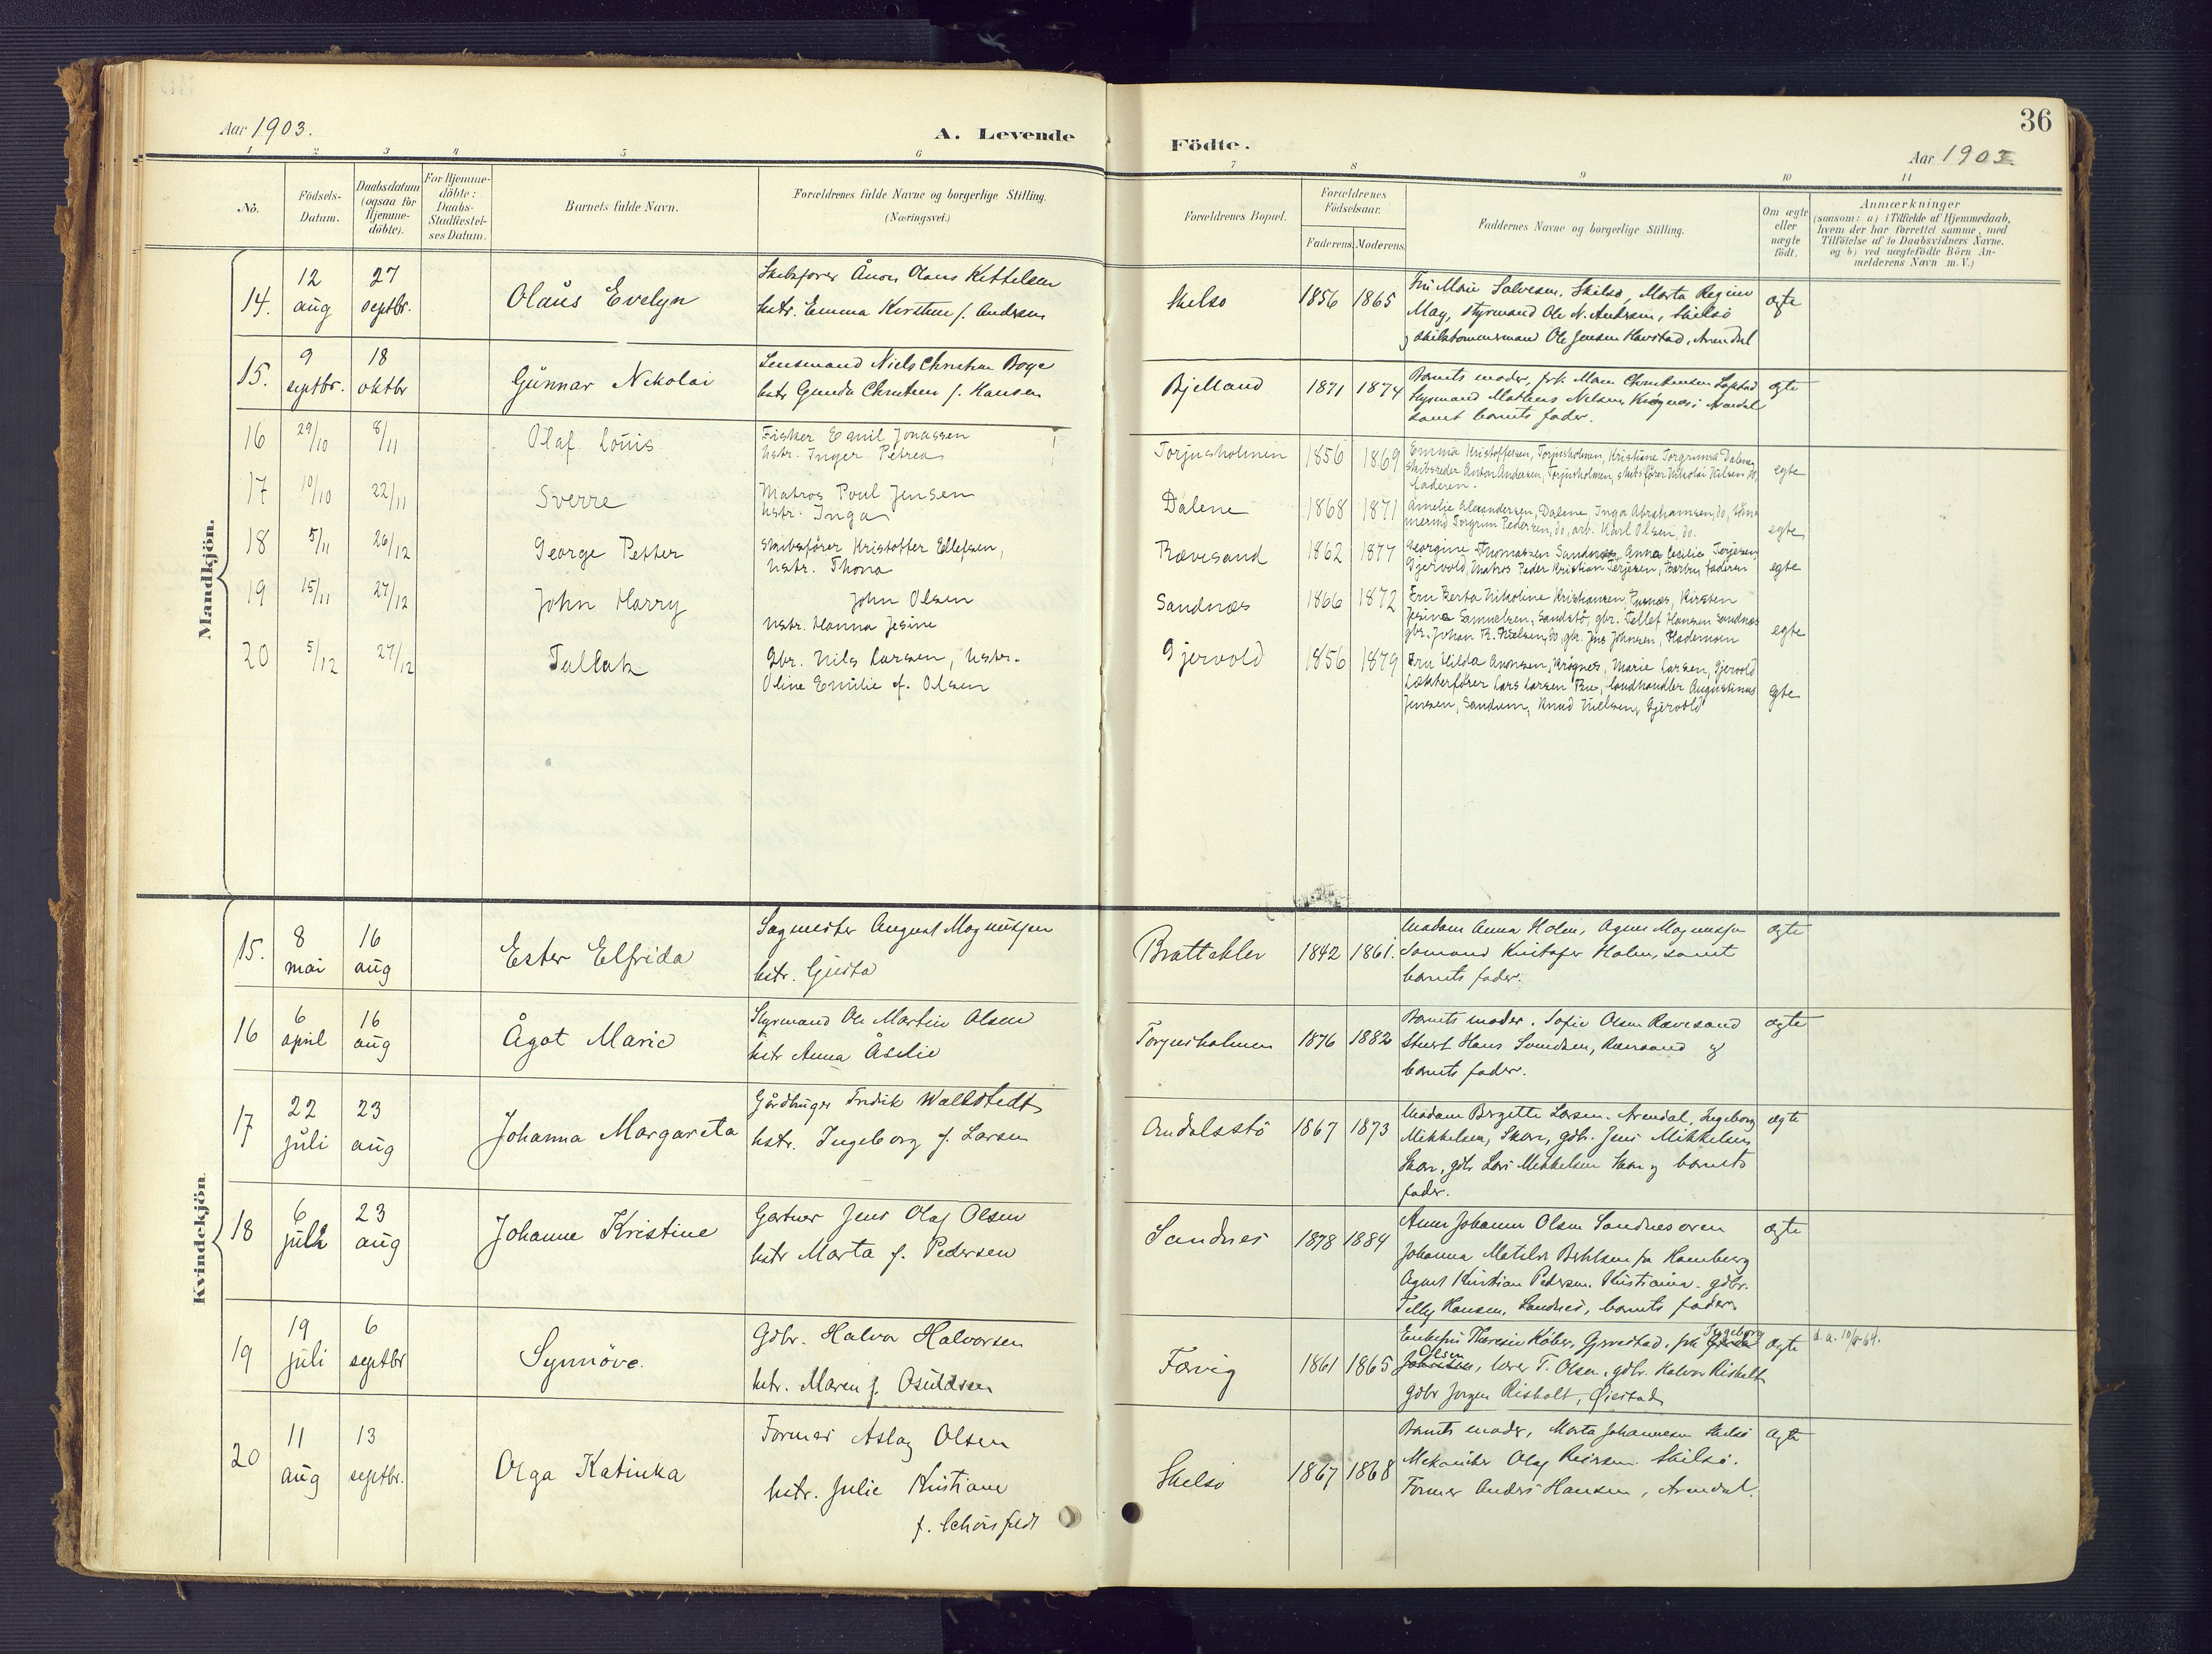 Aar 1903.
A. Levende
Födte.
36
Aar 1903
1 2 3 4 5 6 7 8 9 10 11
No.
Födsels-
Datum.
Daabsdatum
(ogsaa for
Hjemme-
döbte).
For Hjemme-
döbte:
Daabs-
Stadfæstel-
ses Datum.
Barnets fulde Navn.
Forældrenes fulde Navne og borgerlige Stilling.
(Næringsvei.)
Forældrenes Bopæl.
Forældrenes
Födselsaar.
Faderens. Moderens.
Faddernes Navne og borgerlige Stilling.
Om ægte
eller
uægte
födt.
Anmærkninger
(saasom: a) i Tilfælde af Hjemmedaab,
hvem der har forrettet samme, med
Tilföielse af to Daabsvidners Navne.
og b) ved uægtefödte Börn An-
melderens Navn m. V.)
Mandkjön.
14.
12
aug
27
septbr.
Olaus Evelyn
Skibsfører Anon Olaus Kettelsen
hstr. Emma Kirstine f. Andersen
Skilsø
1856 1865
Fru Marie Salvesen, Skilsø, Marta Regine
May, styrmand Ole N. Andersen, Skilsø
skibstømmermand Ole Jensen Havstad, Arendal
ægte
15.
9
septbr.
18
oktbr
Gunnar Nikolai
Lensmand Niels Christian Boye
hstr Gunda f. Hansen
Bjelland
1871 1874
Barnets moder, frk.
Styrmand Mathias Nielsen, Arendal
samt barnets fader.
ægte
16
29/10
8/11
Olaf Louis
Fisker Emil Jonassen
hstr. Inger Petrea
Torjusholmen
1856 1869
Emma Kristoffersen, Torjusholmen, Kristiane Torgrimsd Dalene
Skibsreder Anton Andersen, Torjusholmen, skibsfører Nikolai Nilsen, do,
faderen.
egte
17
10/10
22/11
Sverre
Matros Poul Jensen
hstr. Inga
Dalene
1868 1871
Amelie Alexandersen, Dalene Inga Abrahamsen, do, töm-
mermd Torgrim Pedersen, do, arb. Karl Olsen, do.
egte
18
5/11
26/12
George Petter
Skibsfører Kristoffer Ellefsen,
hstr. Thora
Rævesand
1862 1877
Georgine Thomassen Sandnæs, Anna Cecilie Terjesen,
Gjervold, Matros Peder Kristian Terjesen, Barbu, faderen
egte
19
15/11
27/12
John Harry
John Olsen
hstr. Hanna Jesine
Sandnæs
1866 1872
Fru Berta Nikoline Kristiansen, Kirsten
Jesine Samuelsen, Sandstø, gbr. Tellef Hansen Sandnæs
gbr. Johan R. Nielsen, do, gbr. Jens Johnsen,
egte
20
5/12
27/12
Tallak
Gbr. Nils Larsen, hstr.
Oline Emilie f. Olsen
Gjervold
1856 1879
Fru Hilda Anonsen, Krøgnes, Marie Larsen, Gjervold
Lars Larsen, landhandler Augustinus
Jensen, Sandum, Knud Nielsen, Gjervold
egte
Kvindekjön.
15.
8
mai
16
aug
Ester Elfrida
Sagmester August Magnussen
hstr. Gusta
Brattekler
1842 1861.
Madam Anna Holm, Agnes Magnussen
Sømand Kristofer Holm, samt
barnets fader.
ægte
16
6
april
16
aug
Ågot Marie
Styrmand Ole Martin Olsen
hstr Anna Åselie
Torjusholmen
1876 1882
Barnets moder. Sofie Olsen Rævesand
Stuert Hans Svendsen, Rævesand og
barnets fader.
ægte
17
22
juli
23
aug
Johanna Margareta
Gårdbruger Fredrik Wallstedt
hstr. Ingeborg f. Larsen
Arndalsstö
1867 1873
Madam Birgitte Larsen. Arendal, Ingeborg
Mikkelsen, Skarv, gdbr. Jens Mikkelsen
Skarv, gdbr Lars Mikkelsen Skarv og barnets
fader.
ægte
18
6
juli
23
aug
Johanne Kristine
Gartner Jens Olaf Olsen
hstr Marta f. Pedersen
Sandnes
1878 1884
Anne Johanne Olsen Sandnes
Johanna Matilde fra Hamburg
Agent Kristian Pedersen. Kristiania. gdbr.
Tellef Hansen, Sandnes, barnets fader.
ægte
19
19
juli
6
septbr
Synnöve.
Gdbr. Halvor Halvorsen
hstr. Maren f. Osuldsen
Færvig
1861 1865
Enkefru Therese Köber, Gjervestad, frk Ingeborg
Olsen, lærer T. Olsen, gdbr. Halvor Risholt
Gdbr Jørgen Risholt, Øiestad
ægte
d. a.
20
11
aug
13
septbr.
Olga Katinka
Former Aslag Olsen
hstr. Julie Kristiane
f.
Skilsø
1867 1868
Barnets moder, Marta Johannesen Skilsø
Mekaniker Olaf Reiersen Skilsø.
Former Anders Hansen, Arendal.
ægte